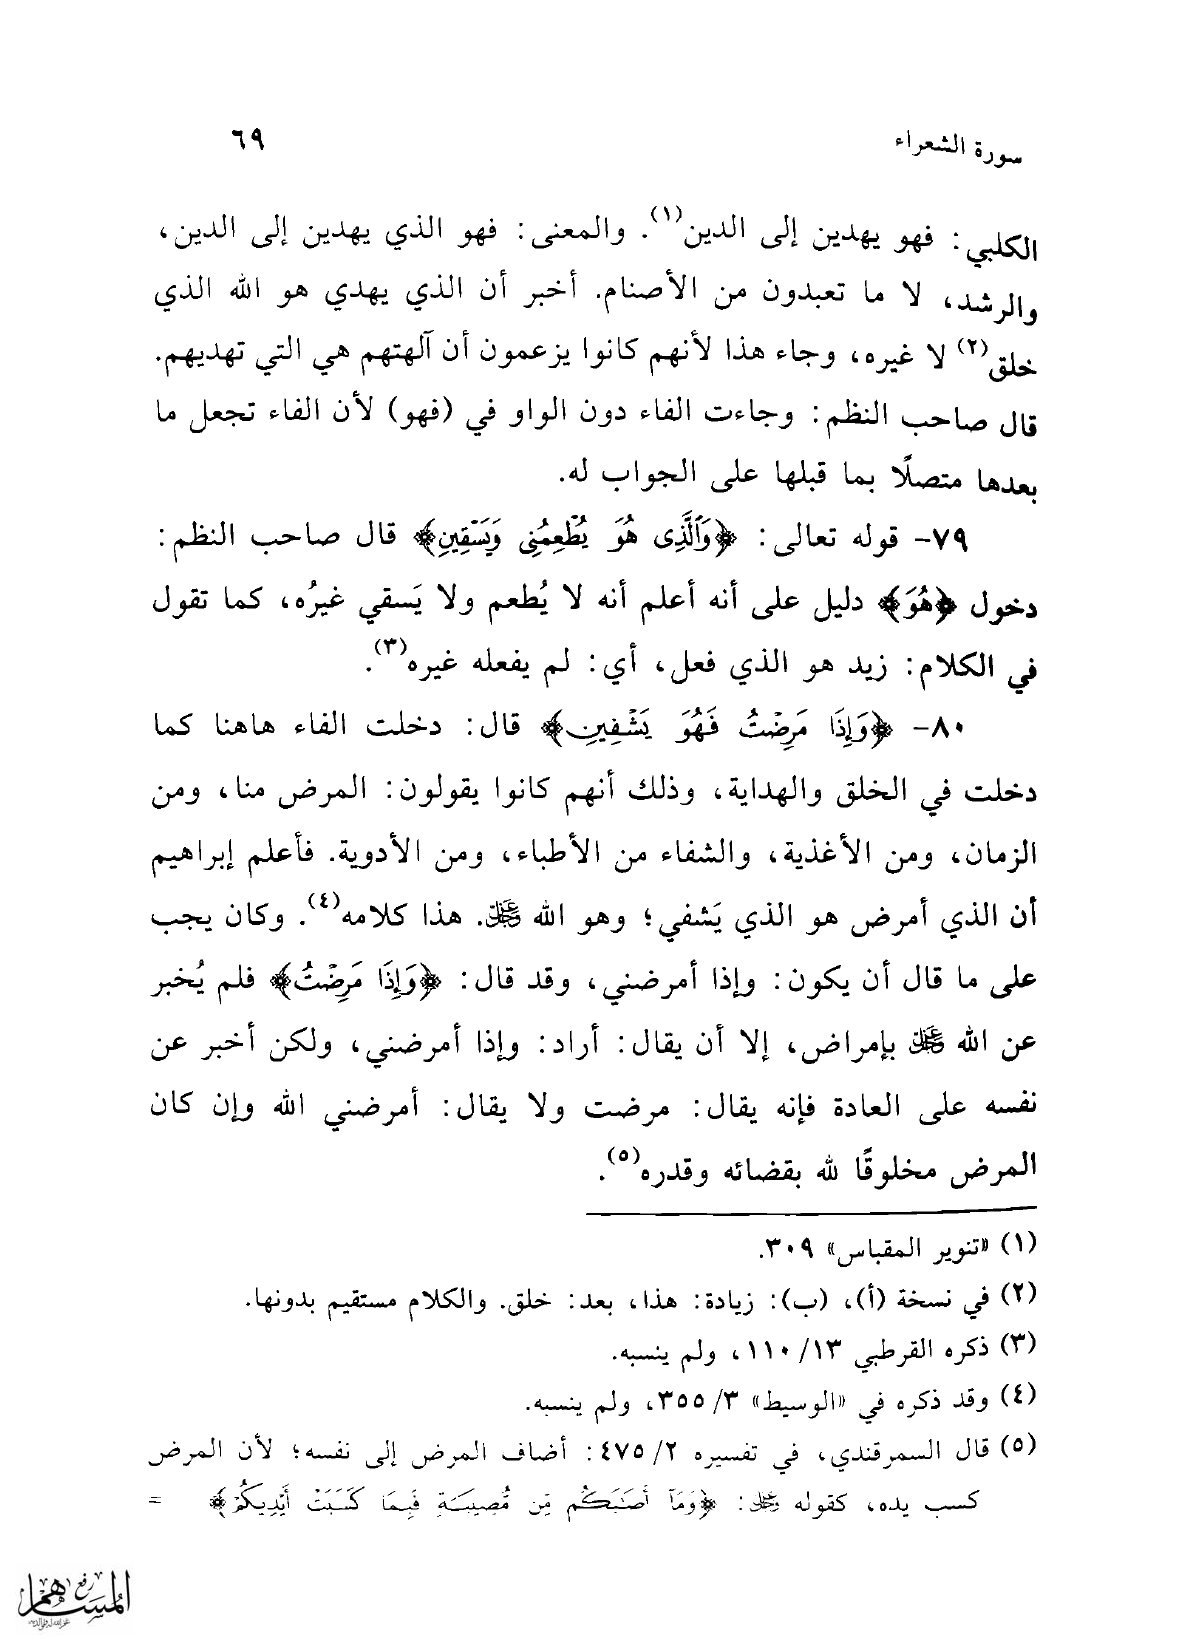 سورة الشعراء ٦٩
الكلبي: فهو يهدين إلى الدين(١). والمعنى: فهو الذي يهدين إلى الدين،
والرشد، لا ما تعبدون من الأصنام. أخبر أن الذي يهدي هو الله الذي
خلق(٢) لا غيره، وجاء هذا لأنهم كانوا يزعمون أن آلهتهم هي التي تهديهم.
قال صاحب النظم: وجاءت الفاء دون الواو في (فهو) لأن الفاء تجعل ما
بعدها متصلًا بما قبلها على الجواب له.
٧٩- قوله تعالى: ﴿وَالَّذِى هُوَ يُطْعِمُنِى وَيَسْقِينِ﴾ قال صاحب النظم:
دخول ﴿هُوَ﴾ دليل على أنه أعلم أنه لا يُطعم ولا يَسقي غيرُه، كما تقول
في الكلام: زيد هو الذي فعل، أي: لم يفعله غيره(٣).
٨٠- ﴿وَإِذَا مَرِضْتُ فَهُوَ يَشْفِينِ﴾ قال: دخلت الفاء هاهنا كما
دخلت في الخلق والهداية، وذلك أنهم كانوا يقولون: المرض منا، ومن
الزمان، ومن الأغذية، والشفاء من الأطباء، ومن الأدوية. فأعلم إبراهيم
أن الذي أمرض هو الذي يَشفي؛ وهو الله عز وجل. هذا كلامه(٤). وكان يجب
على ما قال أن يكون: وإذا أمرضني، وقد قال: ﴿وَإِذَا مَرِضْتُ﴾ فلم يُخبر
عن الله عز وجل بإمراض، إلا أن يقال: أراد: وإذا أمرضني، ولكن أخبر عن
نفسه على العادة فإنه يقال: مرضت ولا يقال: أمرضني الله وإن كان
المرض مخلوقًا لله بقضائه وقدره(٥).
(١) «تنوير المقباس» ٣٠٩.
(٢) في نسخة (أ)، (ب): زيادة: هذا، بعد: خلق. والكلام مستقيم بدونها.
(٣) ذكره القرطبي ١٣/ ١١٠، ولم ينسبه.
(٤) وقد ذكره في «الوسيط» ٣/ ٣٥٥، ولم ينسبه.
(٥) قال السمرقندي، في تفسيره ٢/ ٤٧٥: أضاف المرض إلى نفسه؛ لأن المرض
كسب يده، كقوله عز وجل: ﴿وَمَآ أَصَٰبَكُم مِّن مُّصِيبَةٍ فَبِمَا كَسَبَتْ أَيْدِيكُمْ﴾ =
رفع
المساهم